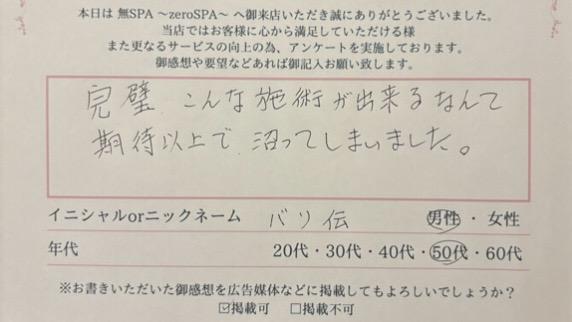 本日は 無SPA ～zeroSPA～ へ御来店いただき誠にありがとうございました。
当店ではお客様に心から満足していただける様
また更なるサービスの向上の為、アンケートを実施しております。
御感想や要望などあれば御記入お願い致します。
完璧 こんな施術が出来るなんて
期待以上で 沼ってしまいました。
イニシャルorニックネーム バリ伝 男性・女性
年代 20代・30代・40代・50代・60代
※お書きいただいた御感想を広告媒体などに掲載してもよろしいでしょうか？
☑掲載可 ☐掲載不可